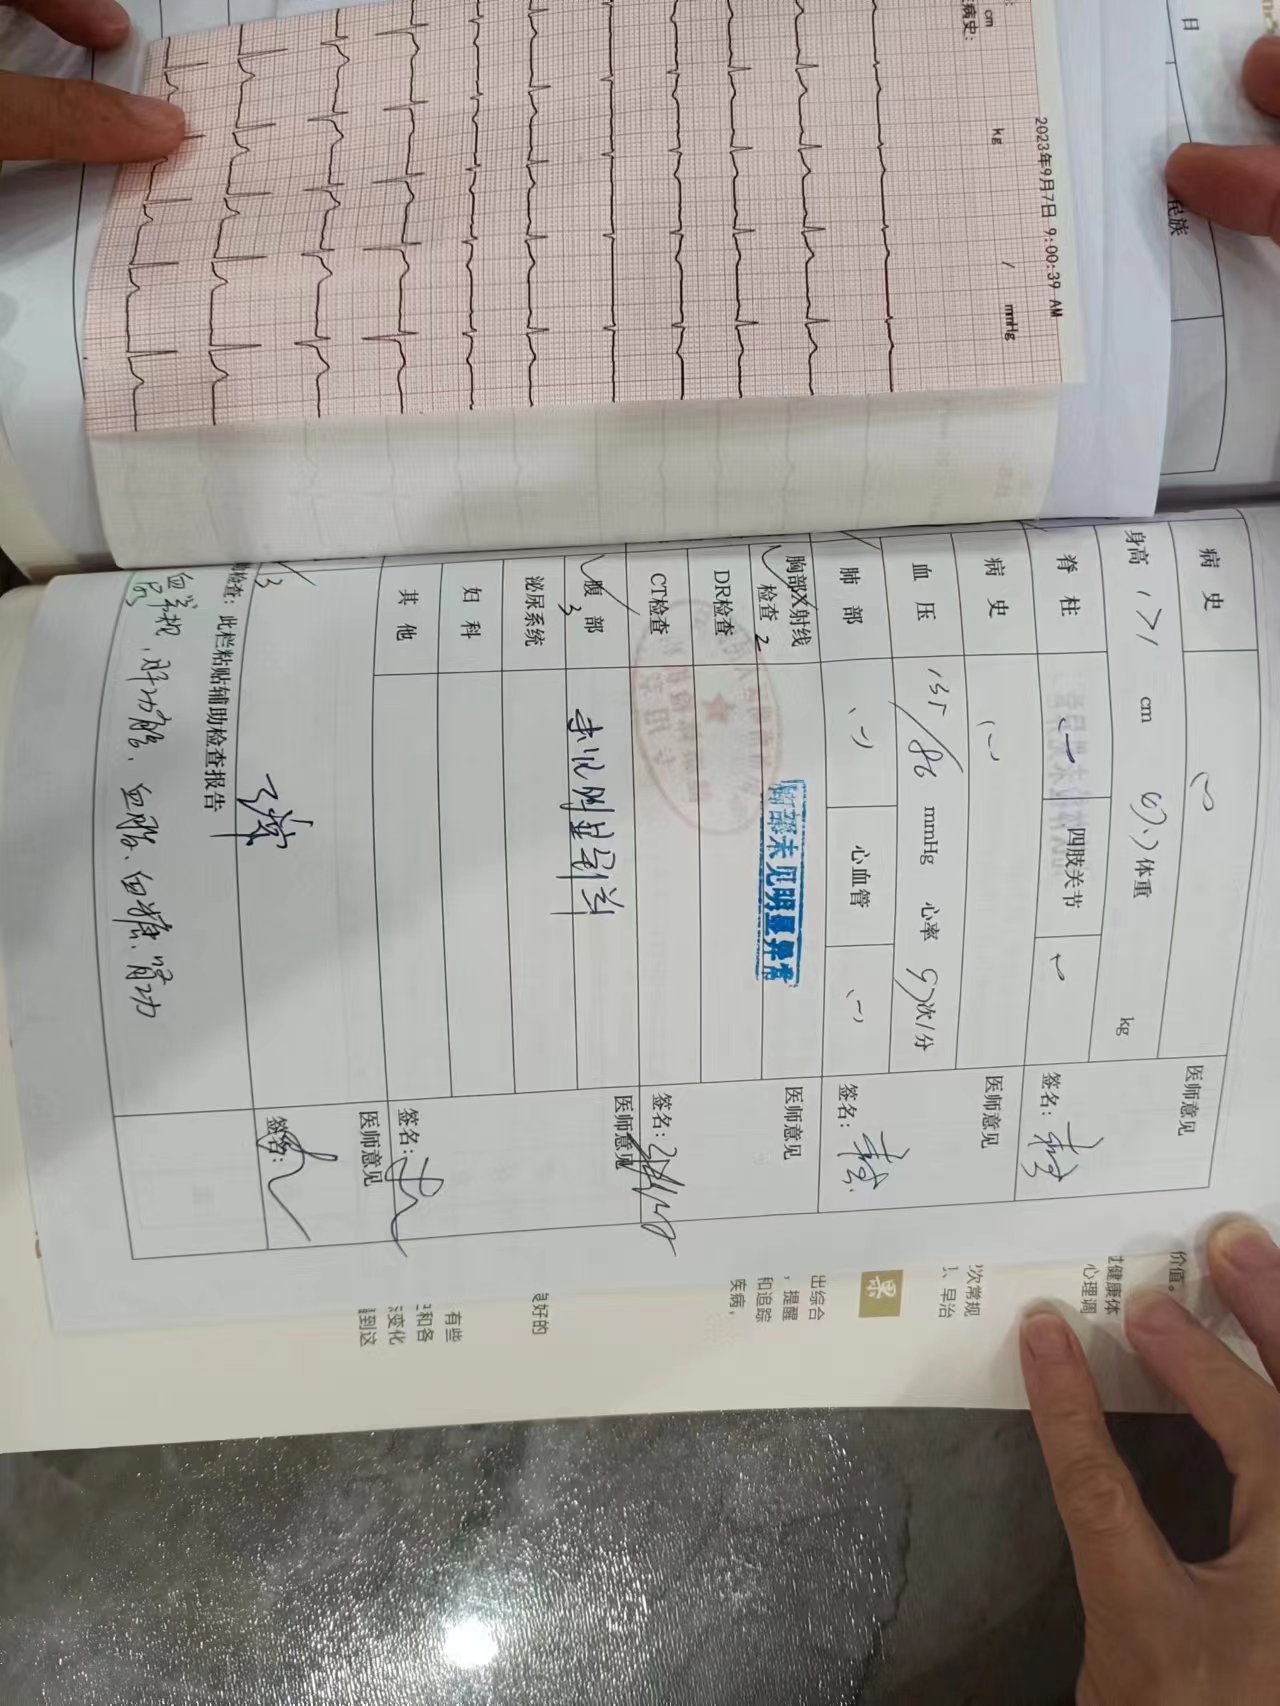 cm
病史：
kg
/ mmHg
2023年9月7日 9:00:39 AM
日
民族
病 史
(-)
医师意见
身高 171 cm
体重 kg
脊 柱
(-)
四肢关节
签名：
病 史
(-)
医师意见
血 压 135/86 mmHg 心率 次/分
肺 部
(-)
心血管
(-)
签名：
胸部X射线
检查 2
胸部未见明显异常
医师意见
DR检查
CT检查
签名：
腹 部
3
未见明显异常
医师意见
泌尿系统
妇 科
其 他
签名：
医师意见
签名：
助检查：此栏粘贴辅助检查报告
血常规、肝功能、血脂、血糖、肾功
价值。
过健康体
心理调
次常规
、早治
果
出综合
，提醒
和追踪
疾病，
良好的
有些
和各
变化
到这